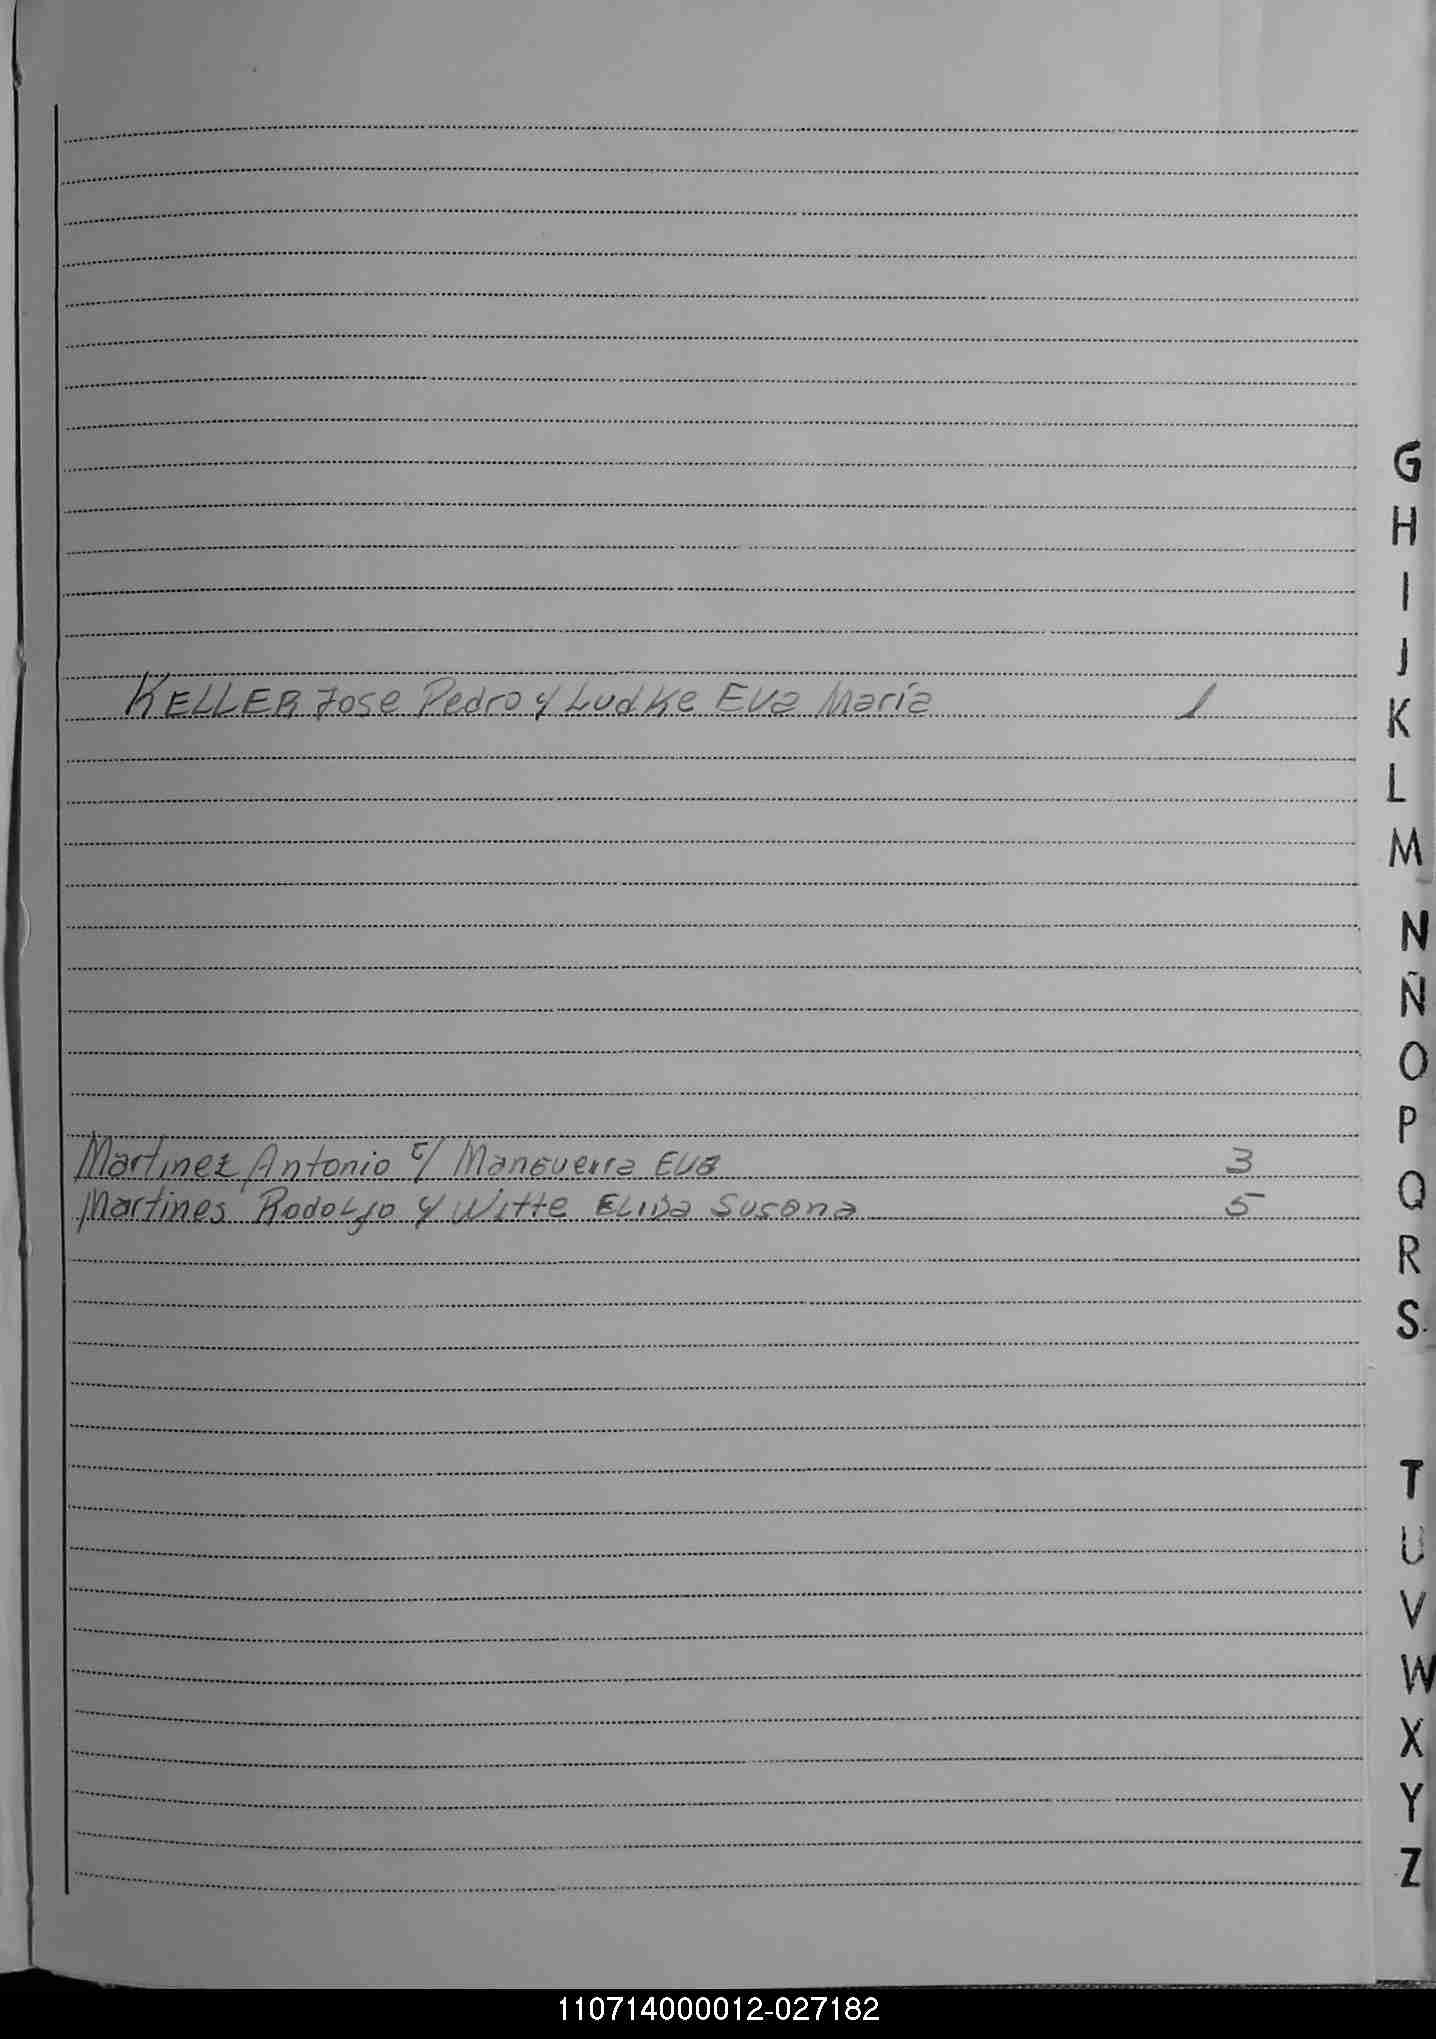 G
H
I
J
KELLER Jose Pedro y Ludke Eva María 1
K
L
M
N
Ñ
O
P
Martinez Antonio c/ Manguerra Eva 3
Q
Martines Rodolfo y Witte ELIDa Susana 5
R
S
T
U
V
W
X
Y
Z
110714000012-027182